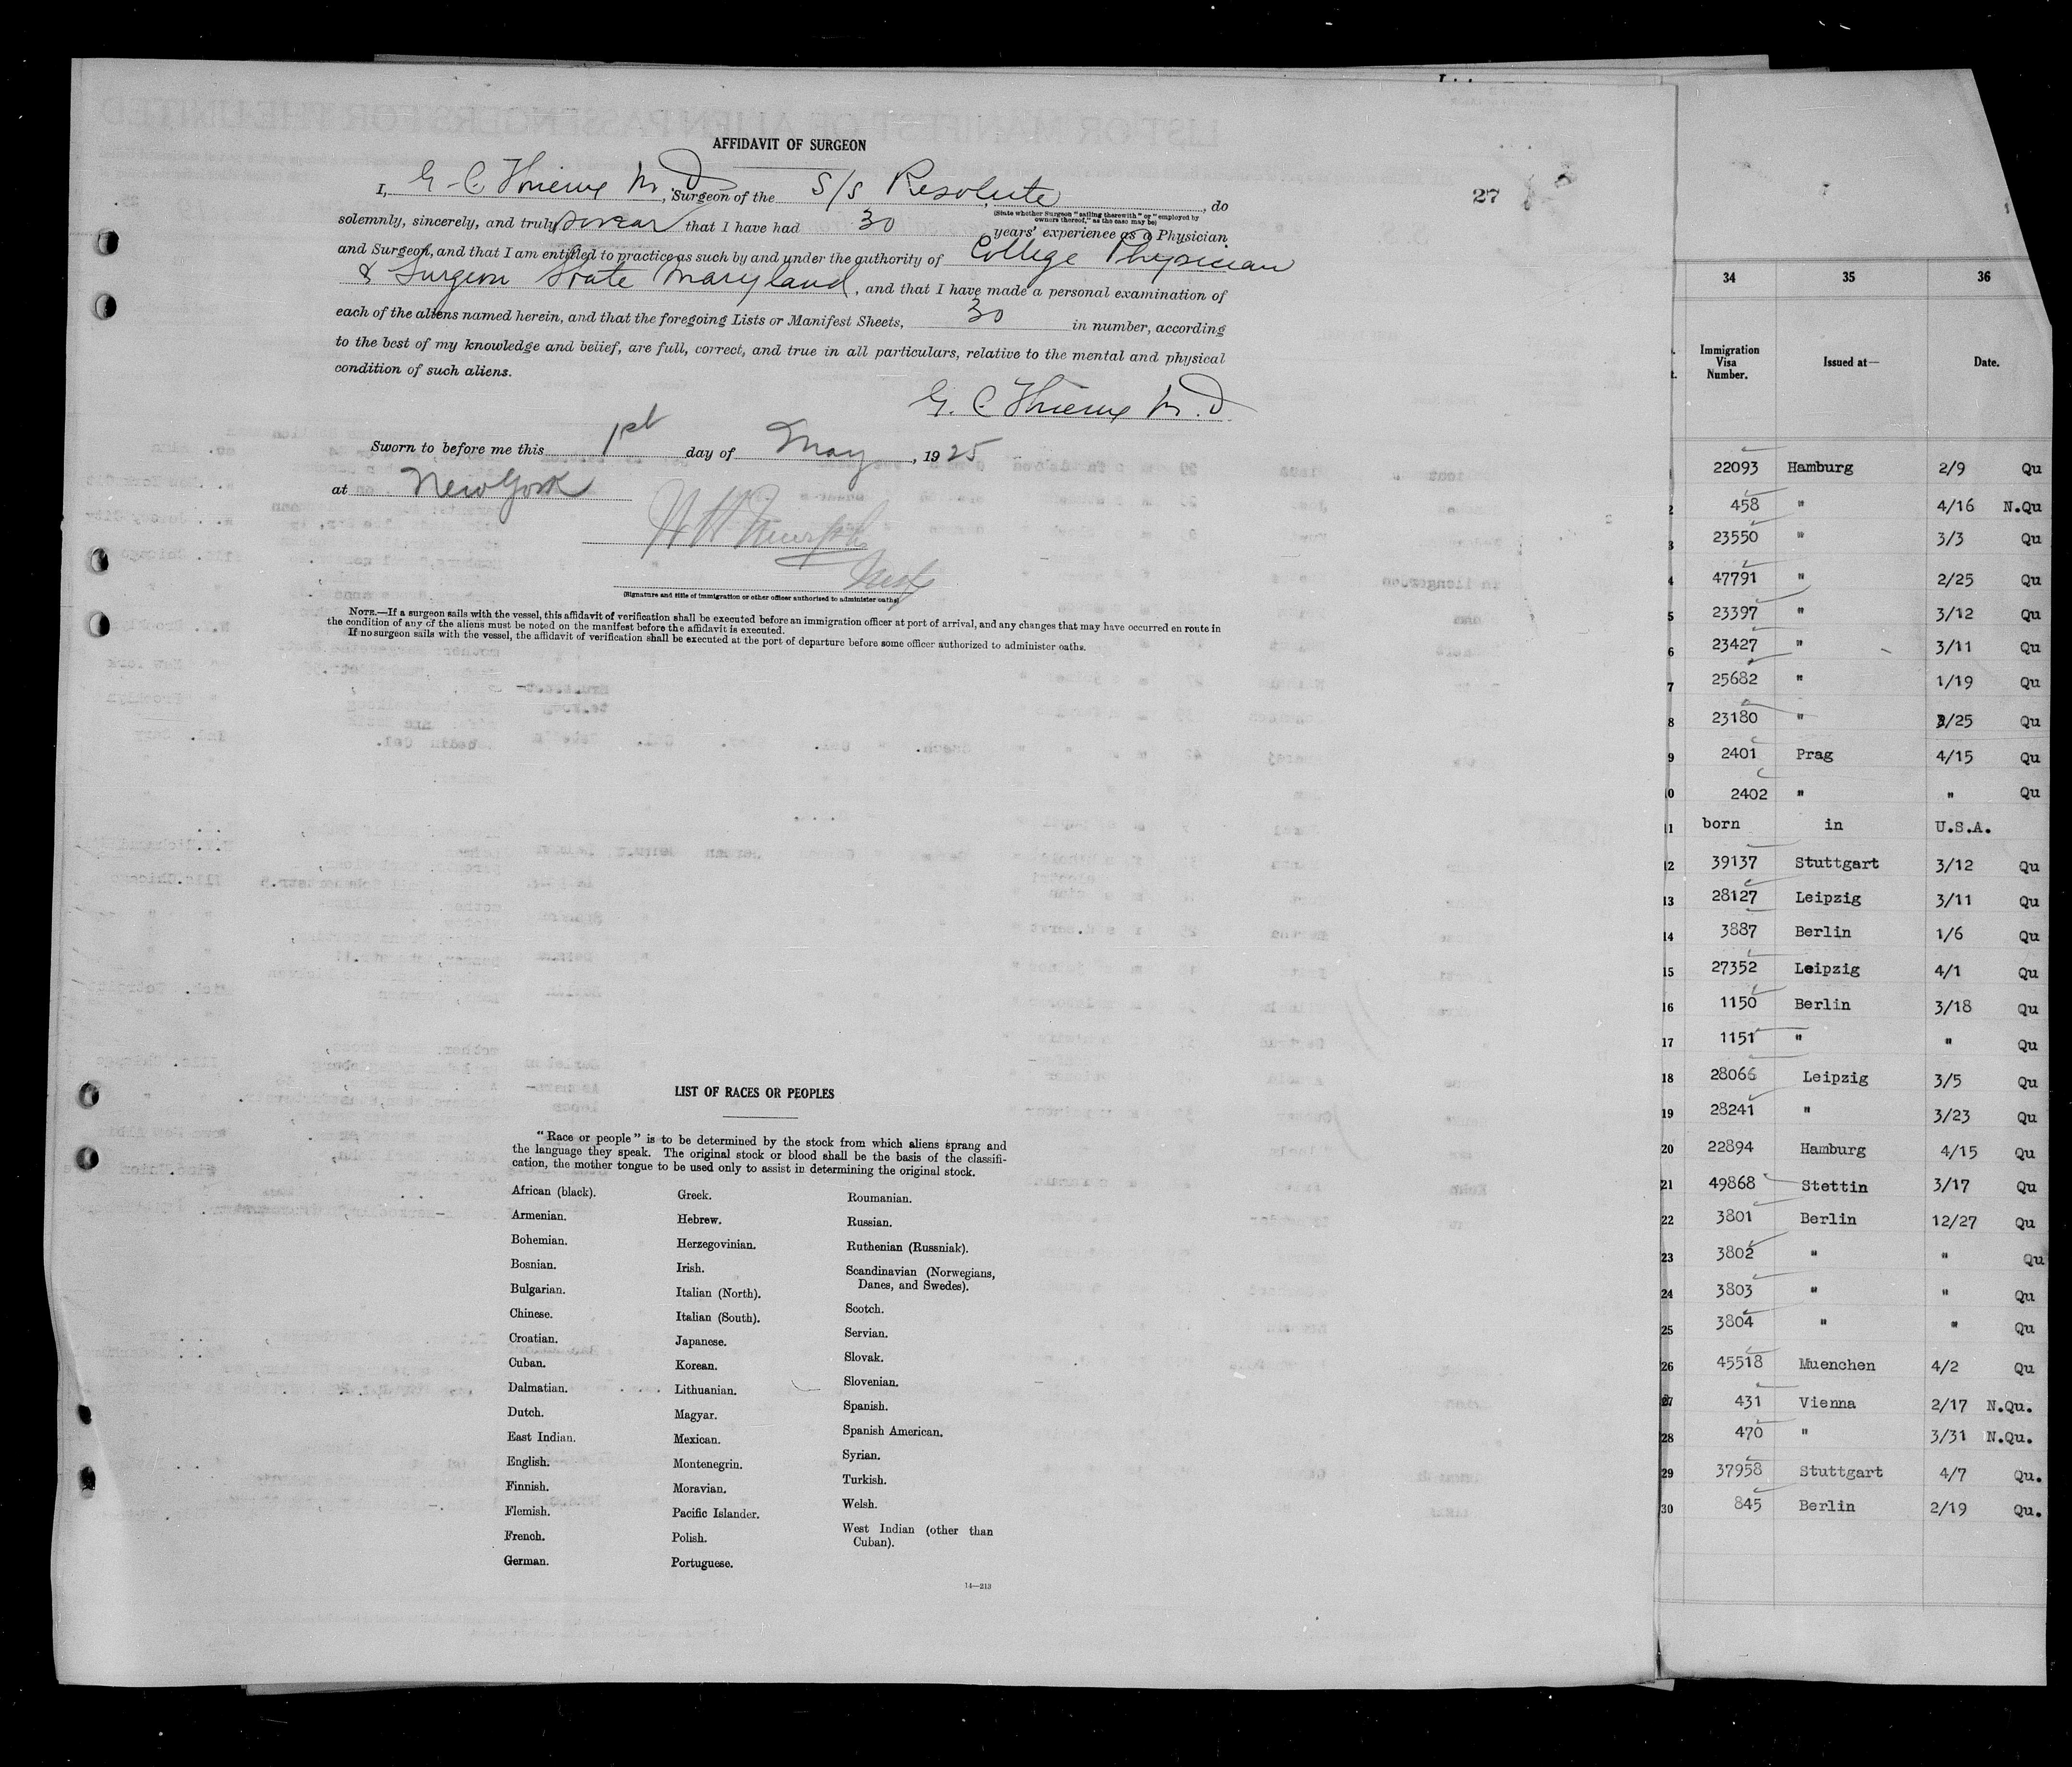 AFFIDAVIT OF SURGEON
I, G. C. Thieme M.D., Surgeon of the S/S Resolute, do
(State whether Surgeon "sailing therewith" or "employed by
owners thereof," as the case may be)
solemnly, sincerely, and truly swear that I have had 30 years' experience as a Physician
and Surgeon, and that I am entitled to practice as such by and under the authority of College Physician
& Surgeon State Maryland, and that I have made a personal examination of
each of the aliens named herein, and that the foregoing Lists or Manifest Sheets, 30 in number, according
to the best of my knowledge and belief, are full, correct, and true in all particulars, relative to the mental and physical
condition of such aliens.
G. C. Thieme M.D
Sworn to before me this 1st day of May, 1925
at New York
(Signature and title of immigration or other officer authorized to administer oaths)
NOTE.—If a surgeon sails with the vessel, this affidavit of verification shall be executed before an immigration officer at port of arrival, and any changes that may have occurred en route in
the condition of any of the aliens must be noted on the manifest before the affidavit is executed.
If no surgeon sails with the vessel, the affidavit of verification shall be executed at the port of departure before some officer authorized to administer oaths.
27
LIST OF RACES OR PEOPLES
"Race or people" is to be determined by the stock from which aliens sprang and
the language they speak. The original stock or blood shall be the basis of the classifi-
cation, the mother tongue to be used only to assist in determining the original stock.
African (black).
Armenian.
Bohemian.
Bosnian.
Bulgarian.
Chinese.
Croatian.
Cuban.
Dalmatian.
Dutch.
East Indian.
English.
Finnish.
Flemish.
French.
German.
Greek.
Hebrew.
Herzegovinian.
Irish.
Italian (North).
Italian (South).
Japanese.
Korean.
Lithuanian.
Magyar.
Mexican.
Montenegrin.
Moravian.
Pacific Islander.
Polish.
Portuguese.
Roumanian.
Russian.
Ruthenian (Russniak).
Scandinavian (Norwegians,
Danes, and Swedes).
Scotch.
Servian.
Slovak.
Slovenian.
Spanish.
Spanish American.
Syrian.
Turkish.
Welsh.
West Indian (other than
Cuban).
14—213
34 35 36
Immigration
Visa
Number.
Issued at—
Date.
1 22093 Hamburg 2/9 Qu
2 458 " 4/16 N.Qu
3 23550 " 3/3 Qu
4 47791 " 2/25 Qu
5 23397 " 3/12 Qu
6 23427 " 3/11 Qu
7 25682 " 1/19 Qu
8 23180 " 2/25 Qu
9 2401 Prag 4/15 Qu
10 2402 " " Qu
11 born in U.S.A.
12 39137 Stuttgart 3/12 Qu
13 28127 Leipzig 3/11 Qu
14 3887 Berlin 1/6 Qu
15 27352 Leipzig 4/1 Qu
16 1150 Berlin 3/18 Qu
17 1151 " " Qu
18 28066 Leipzig 3/5 Qu
19 28241 " 3/23 Qu
20 22894 Hamburg 4/15 Qu
21 49868 Stettin 3/17 Qu
22 3801 Berlin 12/27 Qu
23 3802 " " Qu
24 3803 " " Qu
25 3804 " " Qu
26 45518 Muenchen 4/2 Qu
27 431 Vienna 2/17 N.Qu.
28 470 " 3/31 N.Qu.
29 37958 Stuttgart 4/7 Qu.
30 845 Berlin 2/19 Qu.